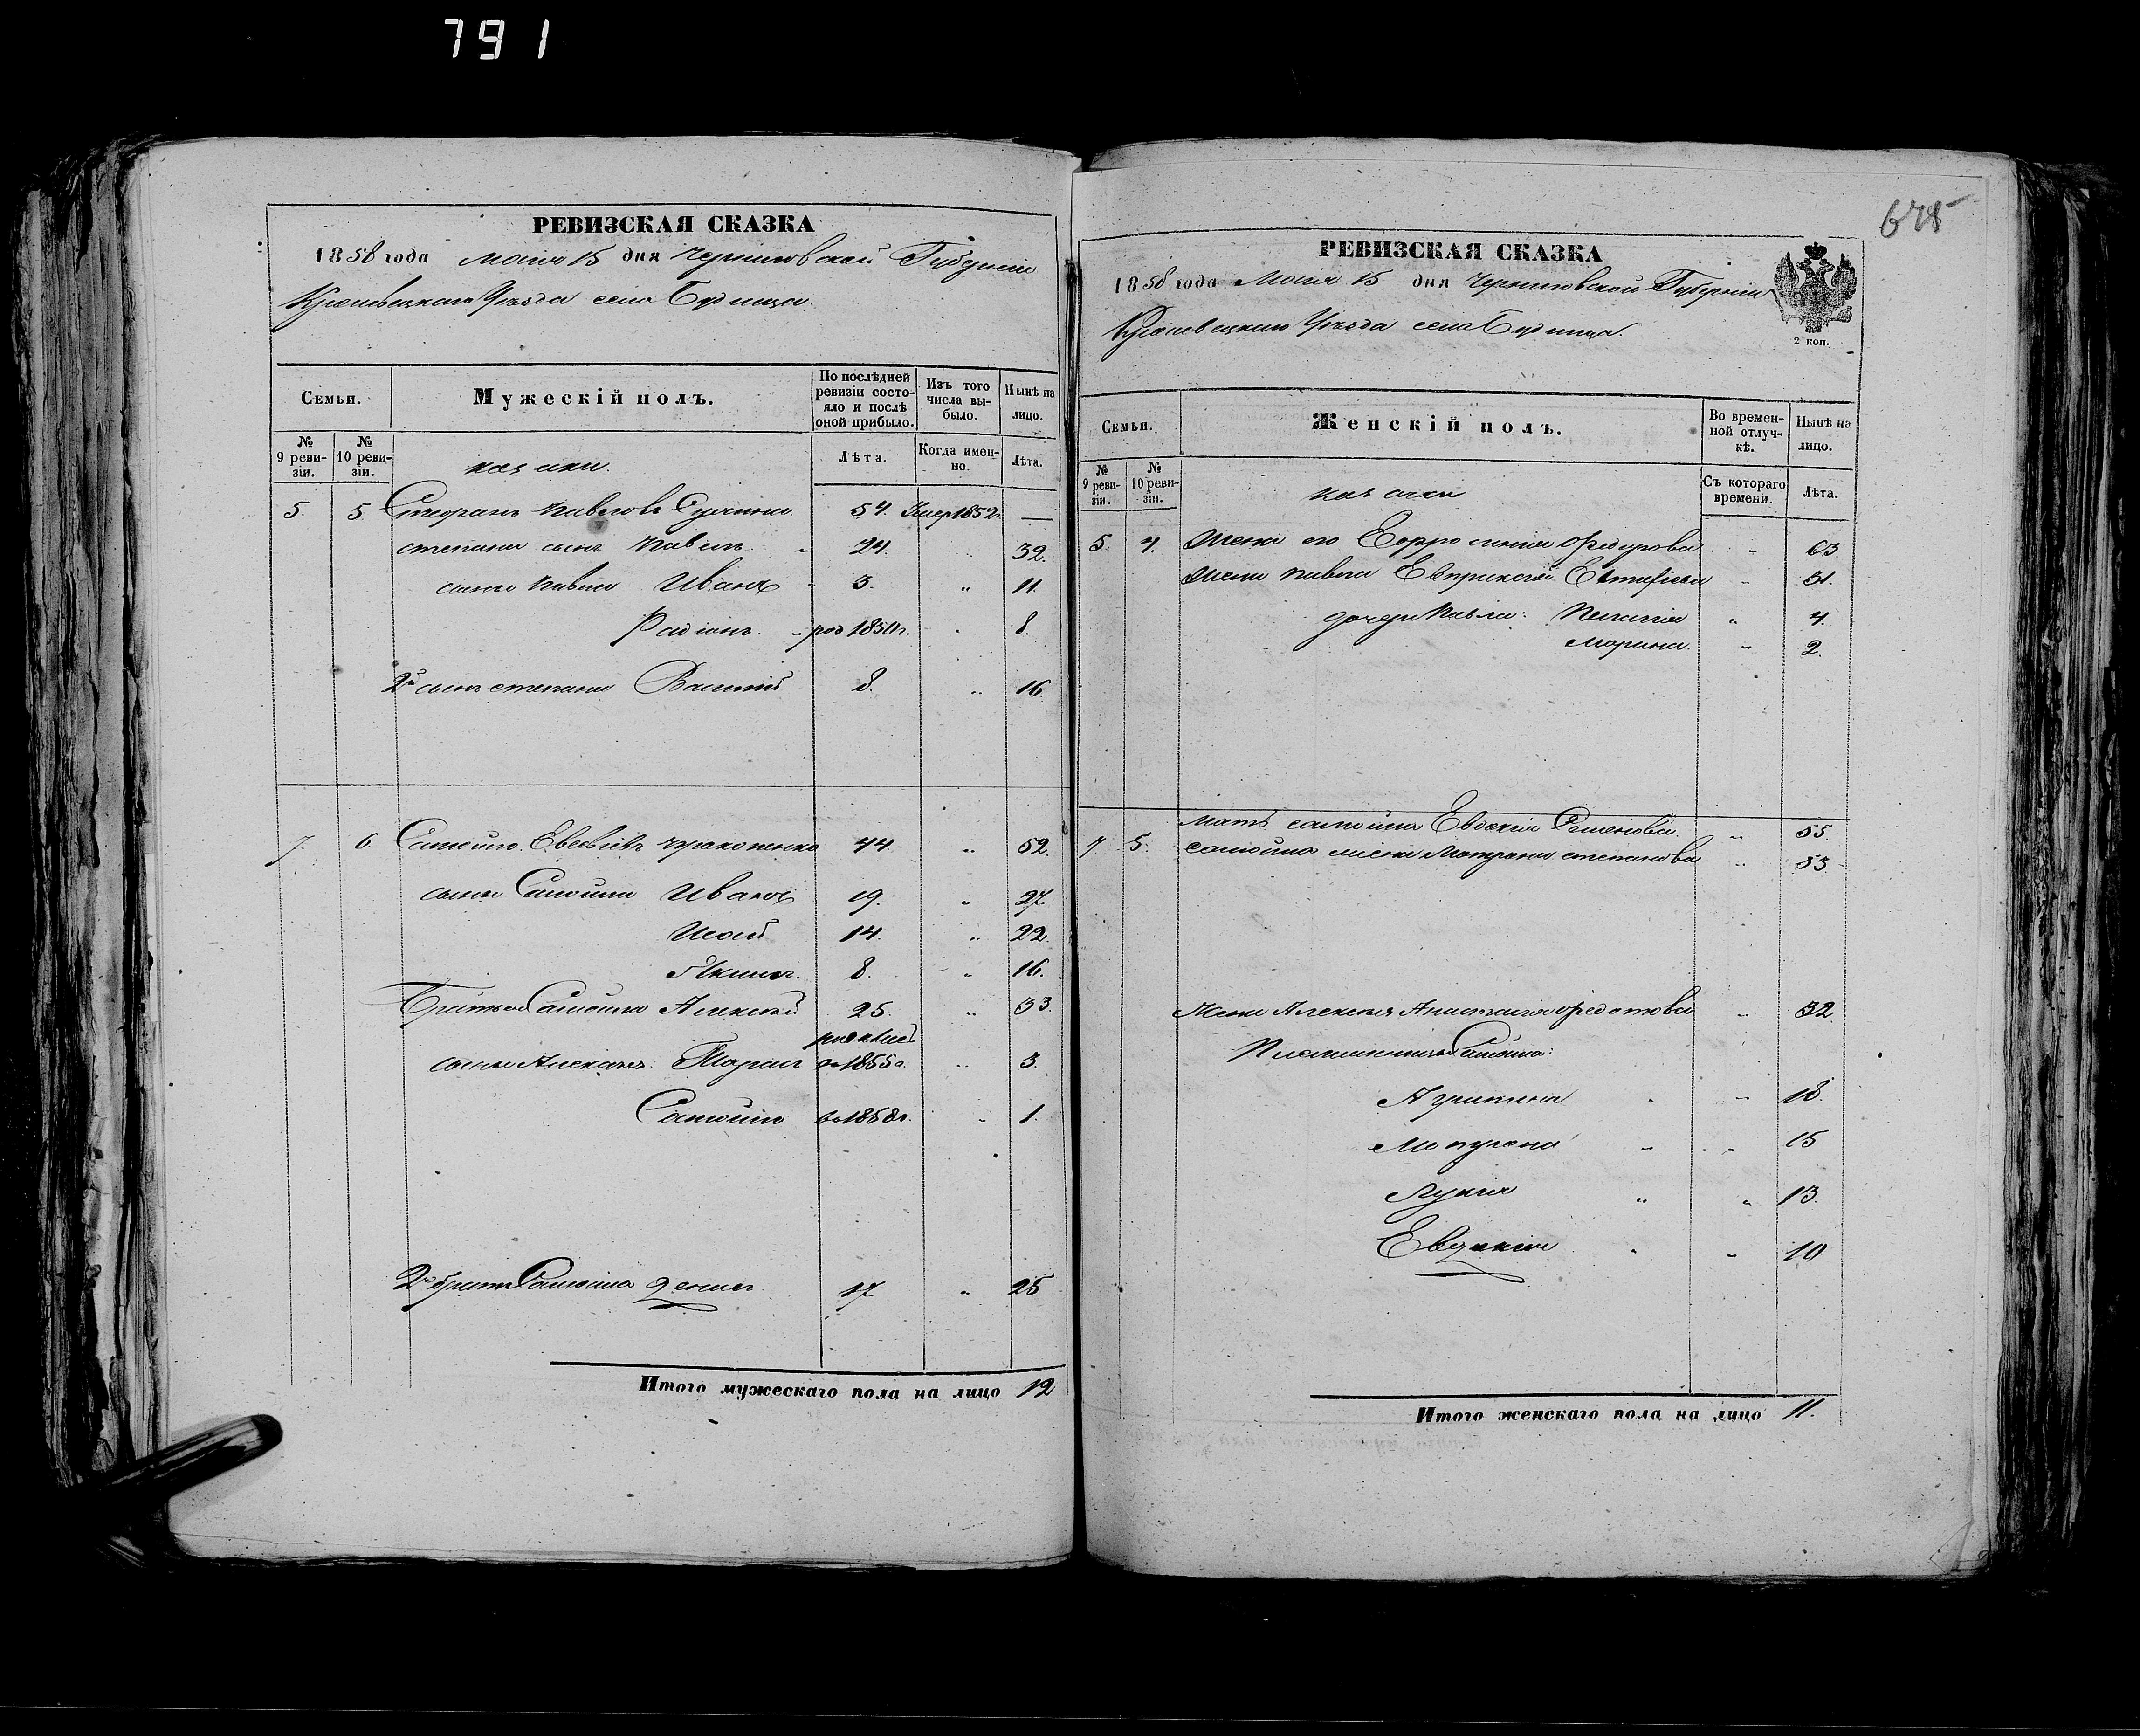 791
РЕВИЗСКАЯ СКАЗКА
1858 года Мая 15 дня Черниговской Губернии
Кролевецкаго Уезда села
Семьи. Мужескій полъ. По послѣдней ревизіи состояло и послѣ оной прибыло. Изъ того числа выбыло. Нынѣ на лицо.
№ 9 ревизіи. № 10 ревизіи. казаки. Лѣта. Когда именно. Лѣта.
5. 5. Павловъ 54. Умер 1852г. —
степана сынъ Павелъ 24. 32.
сыны Павла Иванъ 3. " 11.
Радіонъ. род 1850г. 8.
2й сынъ степана Василий 8. " 16.
7. 6 Самойло 44 " 52.
сыны Самойла Иванъ 19. " 27.
14. " 22.
Якимъ. 8. " 16.
Братъ Самойла Алексѣй 25. " 33.
сыны Алексѣя: Тарасъ в 1855г. " 3.
Самойло в 1858г. " 1.
2й братъ Самойла Денисъ 17. " 25
Итого мужескаго пола на лицо 12
675
РЕВИЗСКАЯ СКАЗКА
1858 года Мая 15 дня Черниговской Губерніи
Кролевецкаго Уезда села
2 коп.
Семьи. Женскій полъ. Во временной отлучкѣ. Нынѣ на лицо.
№ 9 ревизіи. № 10 ревизіи. казачки Съ котораго времени. Лѣта.
5. 4. Жена его Ефросинія Федорова " 63.
Жена Павла Евпраксія " 31.
дочери Павла: Пелагія " 4.
Марина. " 2.
мать самойла Евдокія Семенова. " 55.
7 5. самойла жена Матрона степанова " 53.
Жена Алексѣя Анастасія Федотова " 32.
Племянницы Самойла:
Агрипина " 18.
" 15
Лукія " " 13.
Евдокія " 10
Итого женскаго пола на лицо 11.